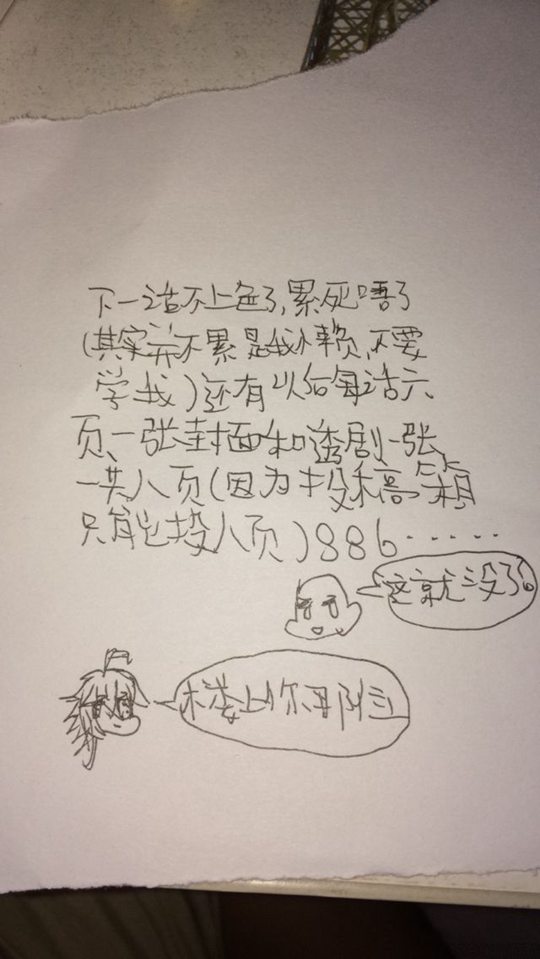 下一话不上色了,累死唔了
(其实并不累是我小懒,不要
学我)还有以后每话六
页、一张封面和透剧一张,
一共八页(因为投稿箱
只能投八页)886......
这就没了。
楼上你